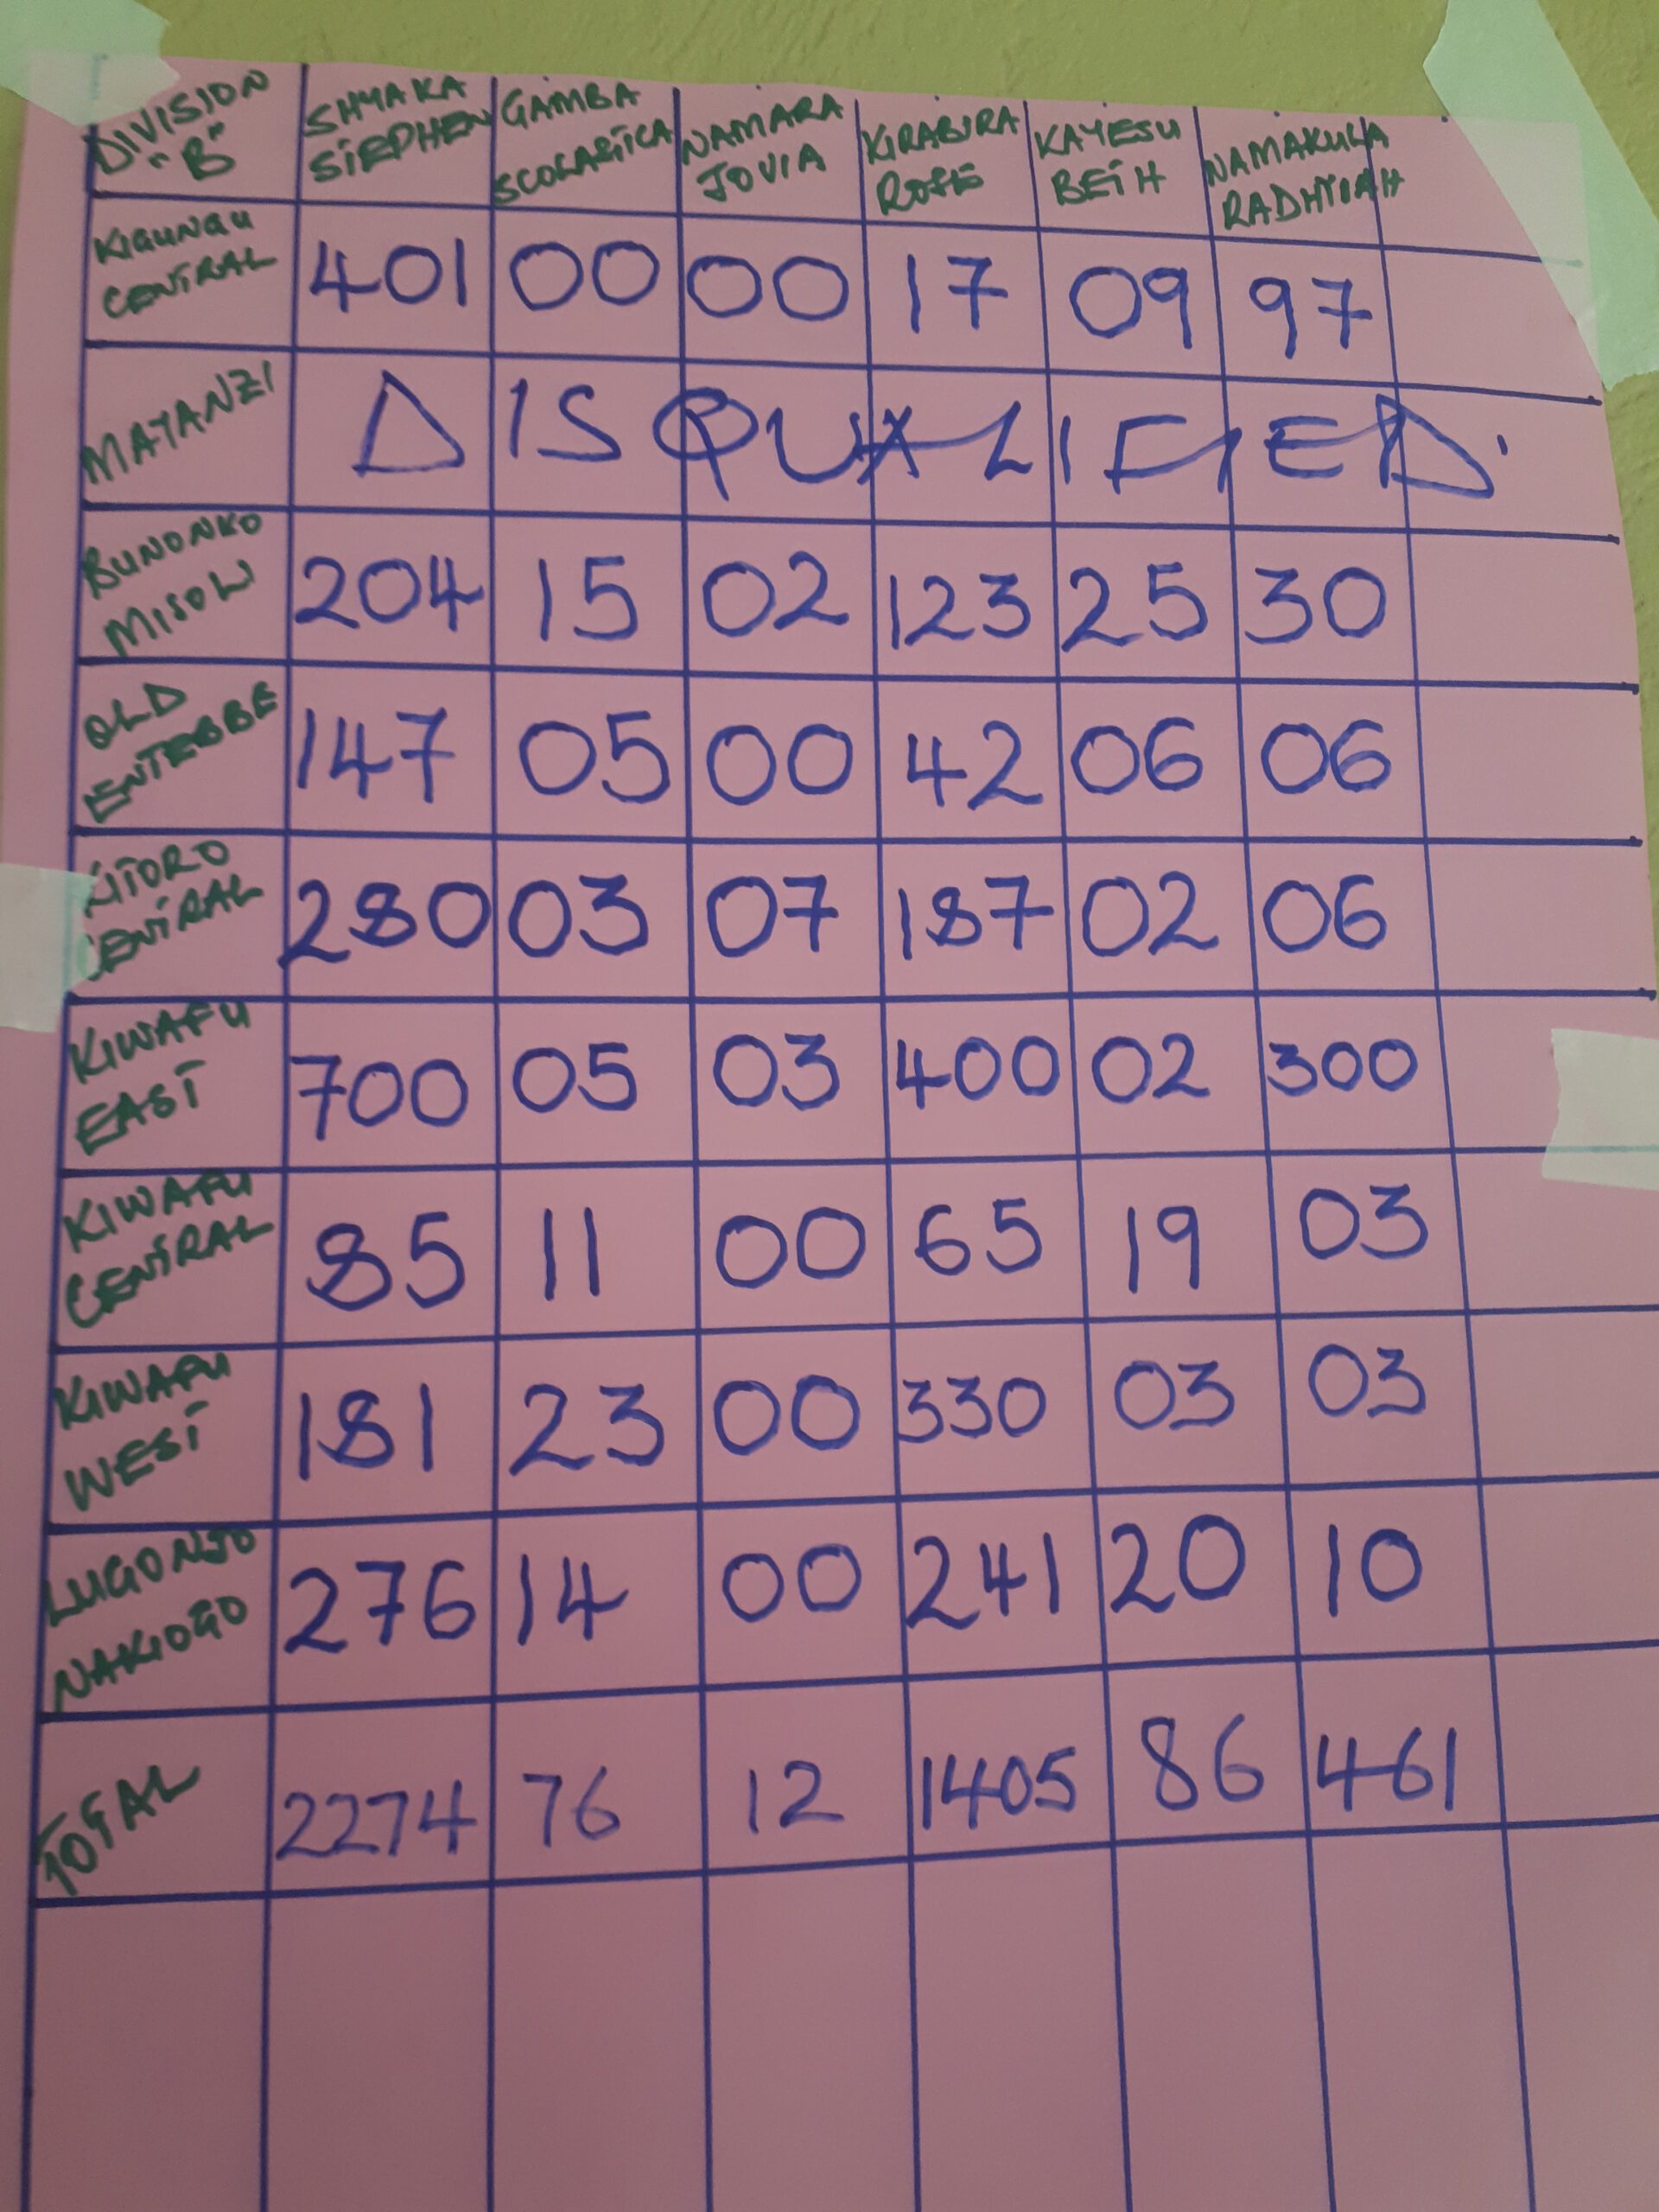 DIVISION "B" SHYAKA STEPHEN GAMBA SCOLASTICA NAMARA JOVIA KIRABIRA ROSE KAYESU BETH NAMAKULA RADHIYAH
KIGUNGU CENTRAL 401 00 00 17 09 97
MAYANZI DISQUALIFIED.
BUNONKO MISOLI 204 15 02 123 25 30
OLD ENTEBBE 147 05 00 42 06 06
KITORO CENTRAL 280 03 07 187 02 06
KIWAFU EAST 700 05 03 400 02 300
KIWAFU CENTRAL 85 11 00 65 19 03
KIWAFU WEST 181 23 00 330 03 03
LUGONJO NAKIOGO 276 14 00 241 20 10
TOTAL 2274 76 12 1405 86 461